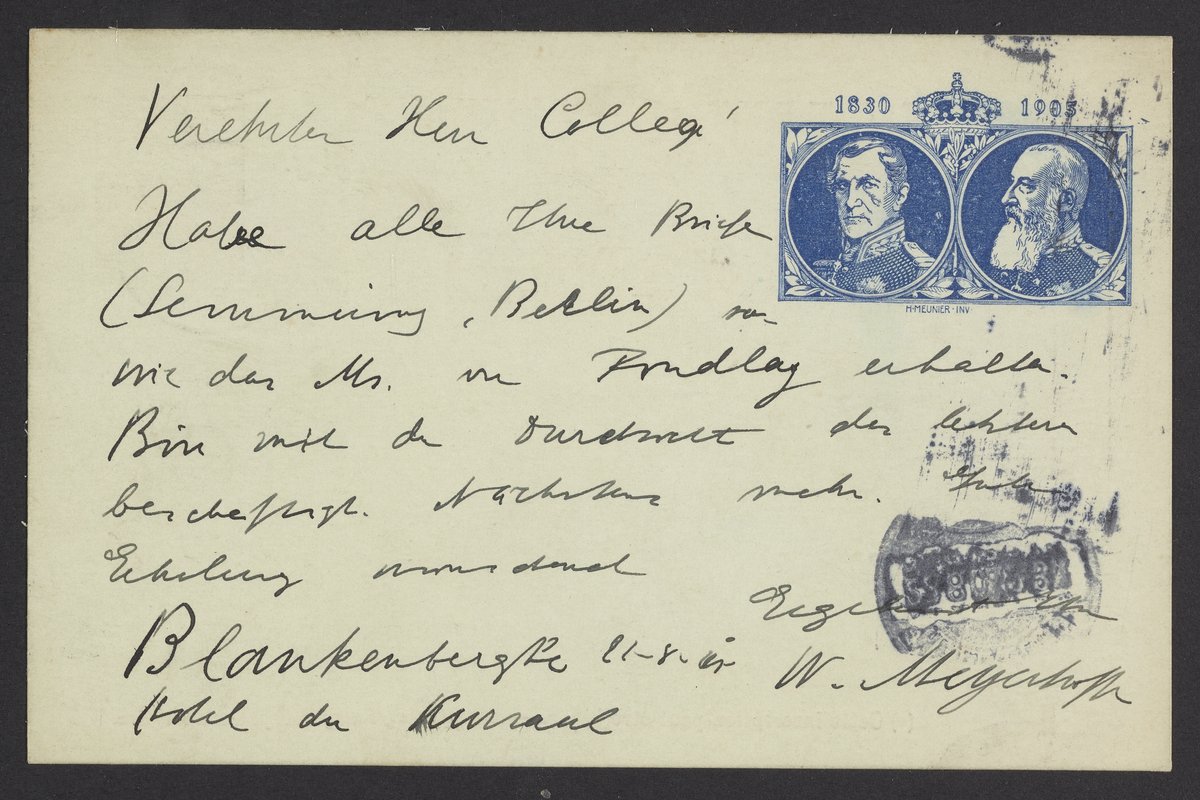 1830 1905
Verehrter Herr College!
Habe alle Ihre Briefe
(Semmering, Berlin) so-
H·MEUNIER·INV
wie das Ms. von erhalten.
Bin mit der Durchsicht des letzteren
beschäftigt. Nächstens mehr. Gute
Erholung wünschend
Ergebenst Ihr
Blankenberghe 21-8-05
W. Meyerhoffer
Hotel du Kursaal